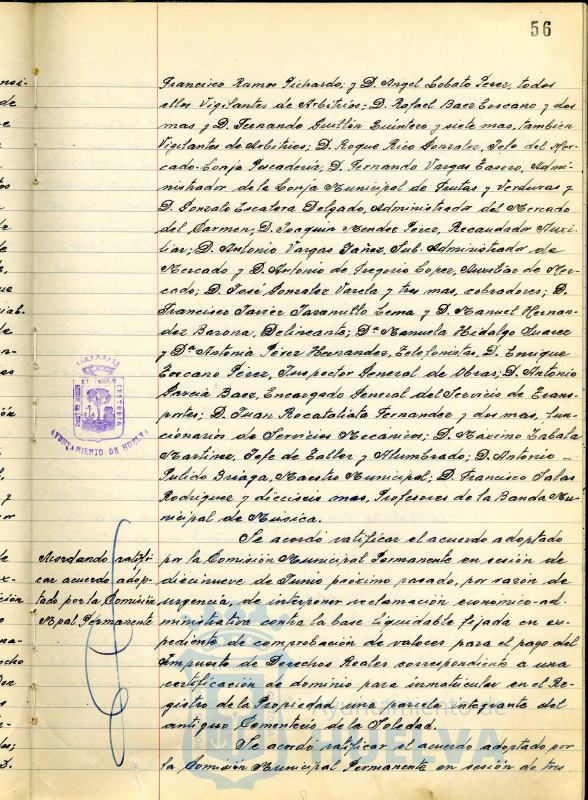 56
Francisco Ramos Pichardo; y D. Angel Lobato Perez, todos
ellos Vigilantes de Arbitrios; D. Rafael Baez Toscano y dos
mas y D. Fernando Guillén Quintero y siete mas, tambien
Vigilantes de Arbitrios; D. Roque Rico Gonzalez, Jefe del Mer-
cado-Lonja Pescadería, D. Fernando Vargas Casero, Admi-
nistrador de la Lonja Municipal de Frutas y Verduras y
D. Gonzalo Escalera Delgado, Administrador del Mercado
del Carmen; D. Joaquin Mendez Pérez, Recaudador Auxi-
liar; D. Antonio Vargas Yañez, Sub-Administrador de
Mercado y D. Antonio de Gregorio Lopez, Auxiliar de Mer-
cado; D. José Gonzalez Varela y tres mas, cobradores; D.
Francisco Javier Jaramillo Lema y D. Manuel Hernan-
dez Barona, Delineante; Dª Manuela Hidalgo Suarez
y Dª Antonia Pérez Hernandez, Telefonistas, D. Enrique
Toscano Pérez, Inspector General de Obras; D. Antonio
Garcia Baez, Encargado General del Servicio de Trans-
portes; D. Juan Rocataliata Fernandez y dos mas, fun-
cionarios de Servicios Mecanicos; D. Máximo Zabala
Martinez, Jefe de Taller y Alumbrado; D. Antonio
Pulido Briaga, Maestro Municipal; D. Francisco Salas
Rodriguez y dieciseis mas, Profesores de la Banda Mu-
nicipal de Música.
AYUNTAMIENTO DE HUELVA
Acordando ratifi-
car acuerdo adop-
tado por la Comisión
Mpal. Permanente
Se acordó ratificar el acuerdo adoptado
por la Comisión Municipal Permanente en sesión de
diecinueve de Junio próximo pasado, por razón de
urgencia, de interponer reclamación económico-ad-
ministrativa contra la base liquidable fijada en ex-
pediente de comprobación de valores para el pago del
Impuesto de Derechos Reales correspondiente a una
certificación de dominio para inmatricular en el Re-
gistro de la Propiedad una parcela integrante del
antiguo Cementerio de la Soledad.
Se acordó ratificar el acuerdo adoptado por
la Comisión Municipal Permanente en sesión de tres
Ayuntamiento de
HUELVA